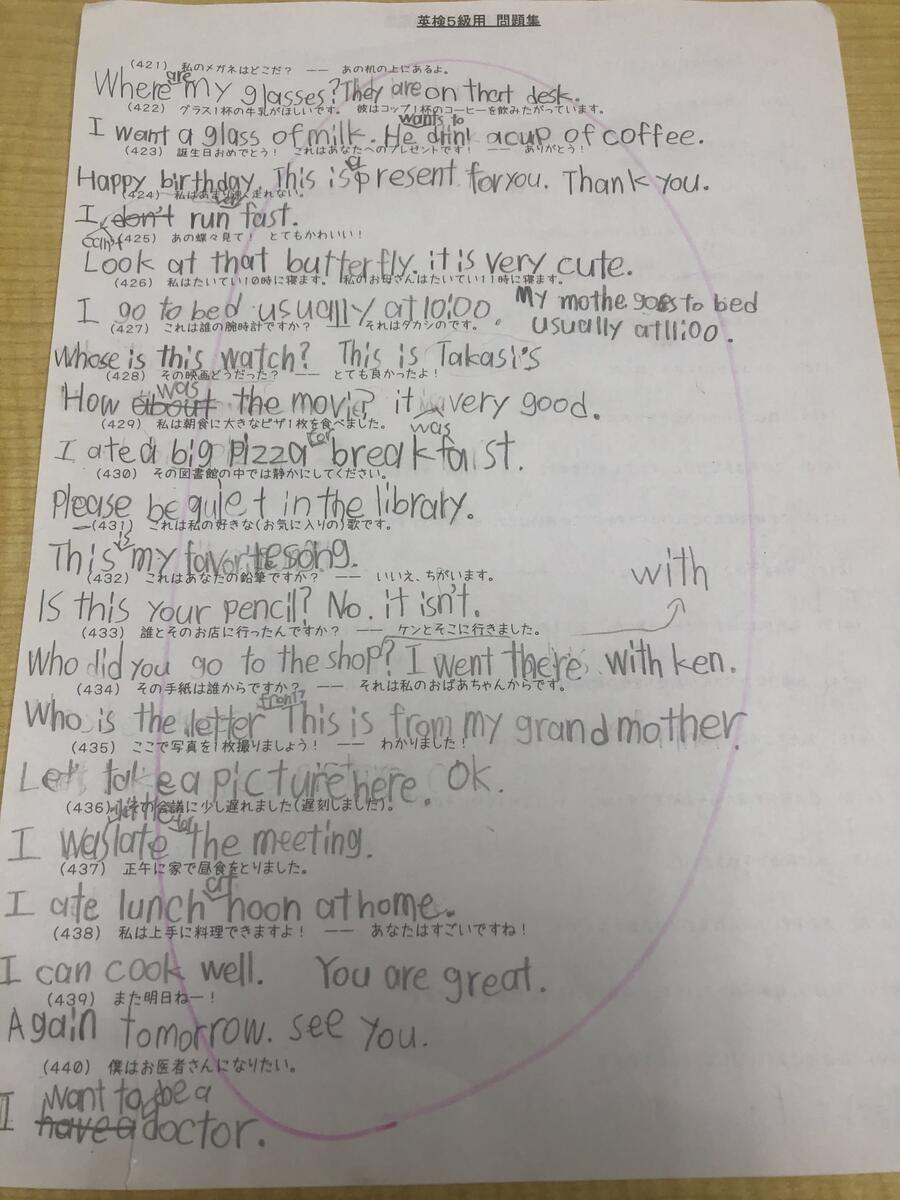 英検5級用 問題集
(421) 私のメガネはどこだ？ ―― あの机の上にあるよ。
are
Where my glasses? They are on that desk.
(422) グラス1杯の牛乳がほしいです。 彼はコップ1杯のコーヒーを飲みたがっています。
wants to
I want a glass of milk. He drink a cup of coffee.
(423) 誕生日おめでとう！ これはあなたへのプレゼントです！ ―― ありがとう！
a
Happy birthday. This is present for you. Thank you.
(424) 私はあまり速く走れない。
I don't run fast.
can't
(425) あの蝶々見て！ とてもかわいい！
Look at that butterfly. it is very cute.
(426) 私はたいてい10時に寝ます。 私のお母さんはたいてい11時に寝ます。
I go to bed usually at 10:00. My mothe goes to bed
usually at 11:00.
(427) これは誰の腕時計ですか？ ―― それはタカシのです。
Whose is this watch? This is Takasi's
(428) その映画どうだった？ ―― とても良かったよ！
was
How about the movie? it very good.
was
(429) 私は朝食に大きなピザ1枚を食べました。
for
I ate a big pizza breakfaist.
(430) その図書館の中では静かにしてください。
Please be quiet in the library.
(431) これは私の好きな(お気に入りの)歌です。
is
This my favorite song.
(432) これはあなたの鉛筆ですか？ ―― いいえ、ちがいます。
with
Is this your pencil? No. it isn't.
(433) 誰とそのお店に行ったんですか？ ―― ケンとそこに行きました。
Who did you go to the shop? I went there with ken.
(434) その手紙は誰からですか？ ―― それは私のおばあちゃんからです。
from?
Who is the letter This is from my grandmother.
(435) ここで写真を1枚撮りましょう！ ―― わかりました！
Let' take a picture here. Ok.
(436) 会議に少し遅れました(遅刻しました)。
for
I was late the meeting.
(437) 正午に家で昼食をとりました。
at
I ate lunch noon at home.
(438) 私は上手に料理できますよ！ ―― あなたはすごいですね！
I can cook well. You are great.
(439) また明日ねー！
Again tomorrow. see you.
(440) 僕はお医者さんになりたい。
want to be a
I have a doctor.